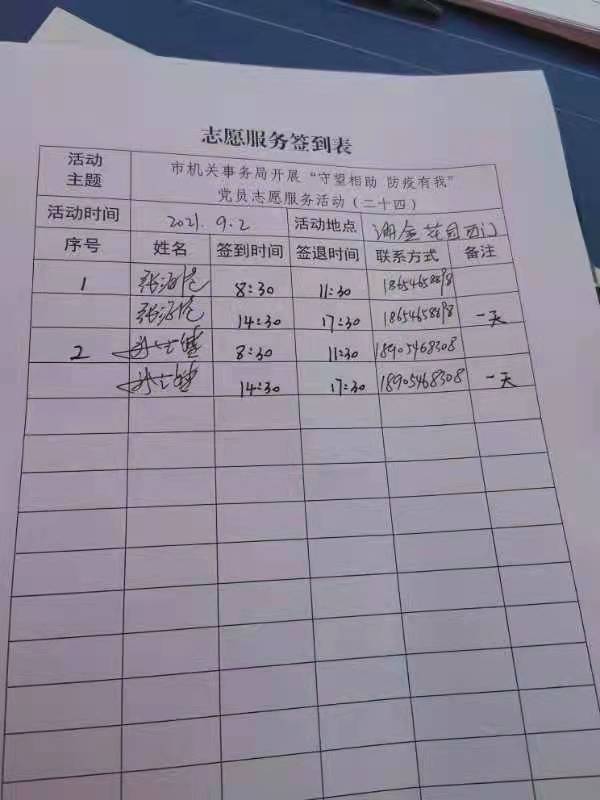 志愿服务签到表
活动主题 市机关事务局开展“守望相助 防疫有我”
党员志愿服务活动(二十四)
活动时间 2021.9.2 活动地点 花园西门
序号 姓名 签到时间 签退时间 联系方式 备注
1 张 8:30 11:30
张 14:30 17:30 一天
2 8:30 11:30 18905468308
14:30 17:30 18905468308 一天